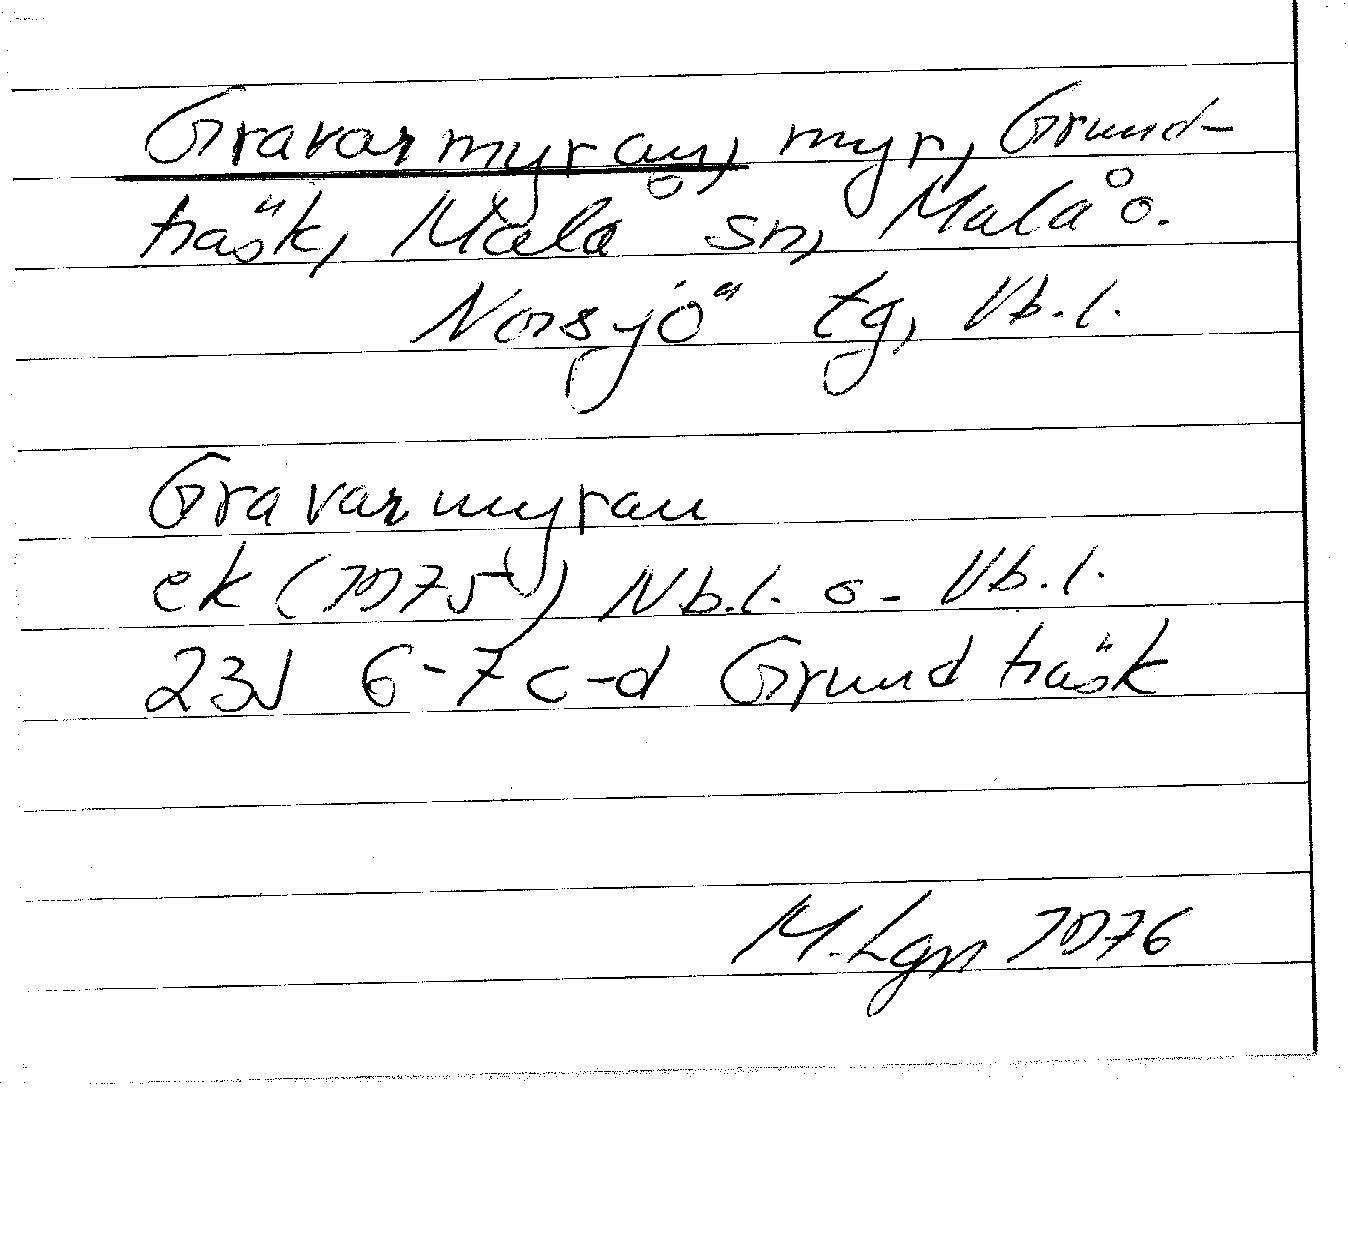 Gravarmyran, myr, Grund-
träsk, Malå sn, Malå o.
Norsjö tg, Vb.l.
Gravarmyran
ek (1975) Nb.l. o. Vb.l.
23J 6-7 c-d Grundträsk
M. Lgn 1976